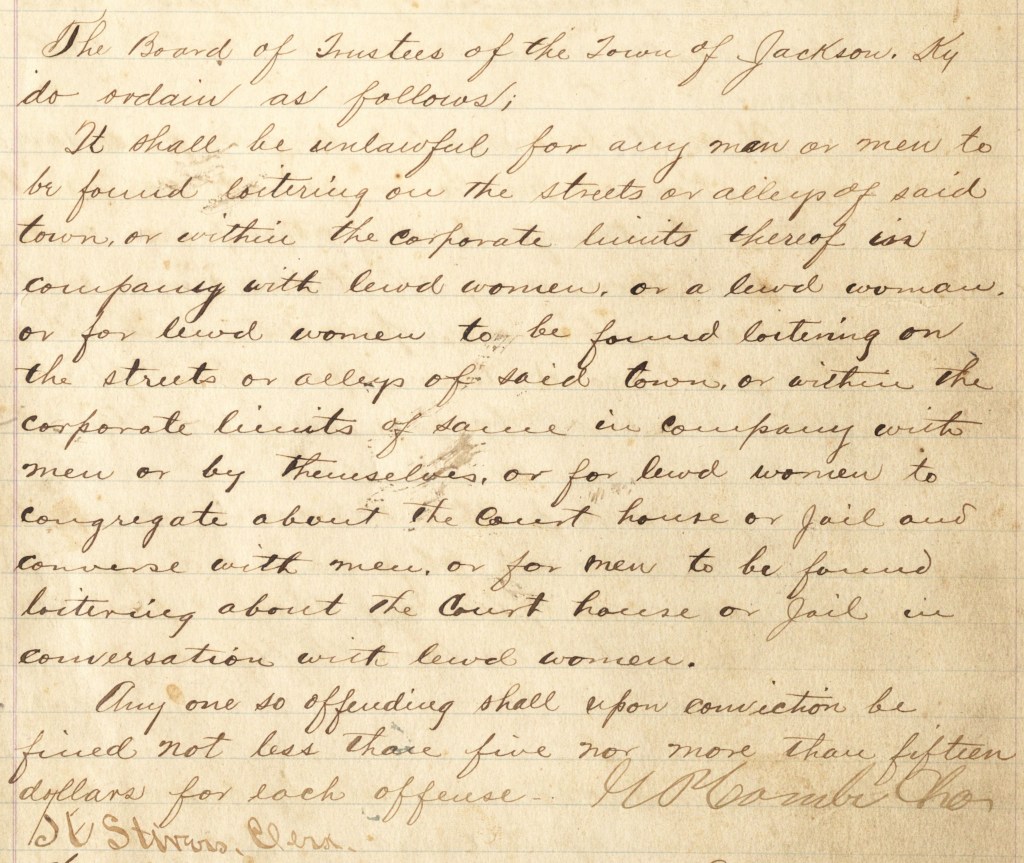 The Board of Trustees of the Town of Jackson. Ky
do ordain as follows;
It shall be unlawful for any man or men to
be found loitering on the streets or alleys of said
town, or within the corporate limits thereof in
company with lewd women, or a lewd woman.
or for lewd women to be found loitering on
the streets or alleys of said town, or within the
corporate limits of same in company with
men or by themselves, or for lewd women to
congregate about the Court house or Jail and
converse with men, or for men to be found
loitering about the Court house or Jail in
conversation with lewd women.
Any one so offending shall upon conviction be
fined not less than five nor more than fifteen
dollars for each offense -
Clerk.